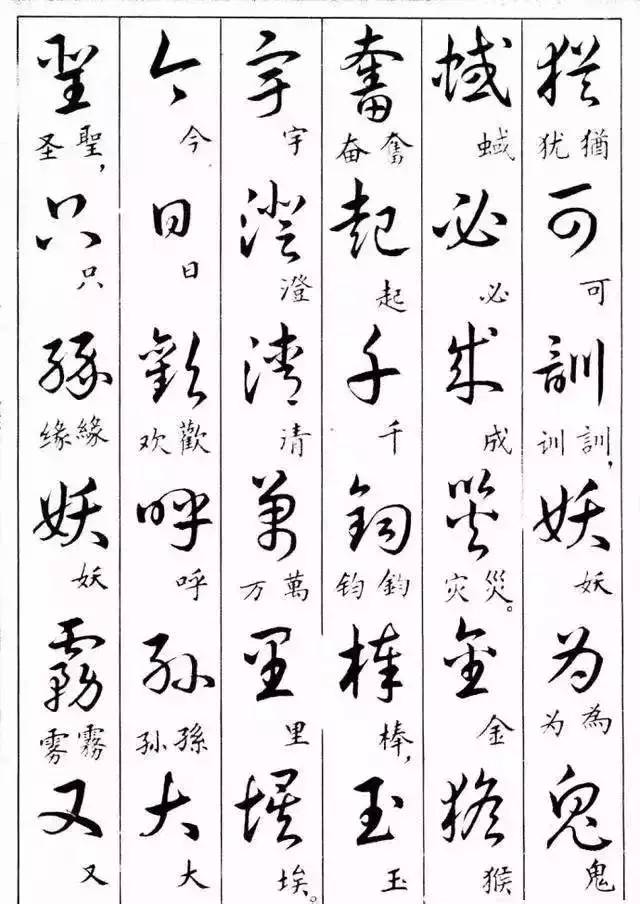 猶 猶犹 可 可 訓 訓,训 妖 妖 为 為为 鬼 鬼
蜮 蜮 必 必 成 成 災 災。灾 金 金 猴 猴
奮 奮奋 起 起 千 千 鈞 鈞钧 棒 棒, 玉 玉
宇 宇 澄 澄 清 清 萬 萬万 里 里 埃 埃。
今 今 日 日 歡 歡欢 呼 呼 孙 孫孙 大 大
聖 聖,圣 只 只 緣 緣缘 妖 妖 霧 霧雾 又 又